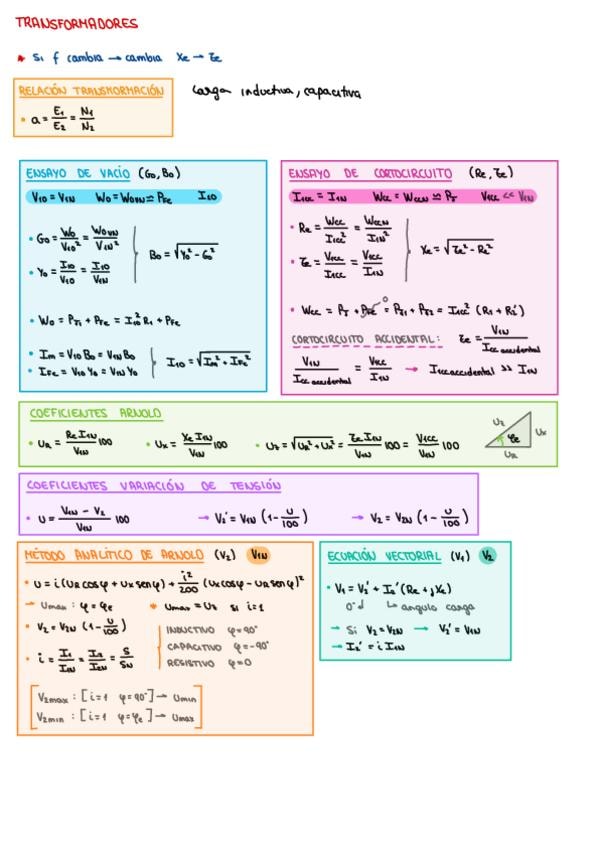 TRANSFORMADORES
* Si f cambia → cambia Xe → Ze
RELACIÓN TRANSFORMACIÓN
Carga inductiva, capacitiva
• a = E1/E2 = N1/N2
ENSAYO DE VACIO (G0, B0)
V10 = V1N W0 = W0VN ≃ PFe I10
• G0 = W0/V10² = W0VN/V1N²
• Y0 = I10/V10 = I10/V1N
B0 = √(Y0² - G0²)
• W0 = PJ1 + PFe = I10² R1 + PFe
• Im = V10 B0 = V1N B0
• IFe = V10 Y0 = V1N Y0
I10 = √(Im² + IFe²)
ENSAYO DE CORTOCIRCUITO (Re, Ze)
I1cc = I1N Wcc = WccN ≃ PJ V1cc << V1N
• Re = Wcc/I1cc² = WccN/I1N²
• Ze = V1cc/I1cc = V1cc/I1N
Xe = √(Ze² - Re²)
• Wcc = PJ + PFe 0 = PJ1 + PJ2 = I1cc² (R1 + R2')
CORTOCIRCUITO ACCIDENTAL: Ze = V1N/Icc accidental
V1N/Icc accidental = Vcc/I1N → I1cc accidental >> I1N
COEFICIENTES ARNOLD
• UR = Re I1N/V1N 100 • UX = Xe I1N/V1N 100 • UZ = √(UR² + UX²) = Ze I1N/V1N 100 = V1cc/V1N 100
UZ UX φe UR
COEFICIENTES VARIACIÓN DE TENSIÓN
• U = (V1N - V2)/V1N 100 → V2' = V1N (1 - U/100) → V2 = V2N (1 - U/100)
MÉTODO ANALÍTICO DE ARNOLD (V2) V1N
• U = i (UR cosφ + UX senφ) + i²/200 (UX cosφ - UR senφ)²
→ Umax: φ = φe * Umax = UZ si i=1
• V2 = V2N (1 - U/100)
• i = I1/I1N = I2/I2N = S/SN
INDUCTIVO φ = 90°
CAPACITIVO φ = -90°
RESISTIVO φ = 0
V2max : [i=1 φ=90°] → Umin
V2min : [i=1 φ=φe] → Umax
ECUACIÓN VECTORIAL (V1) V2
• V1 = V2' + I2' (Re + jXe)
0°↲ ↳ angulo carga
→ Si V2 = V2N → V2' = V1N
→ I2' = i I1N